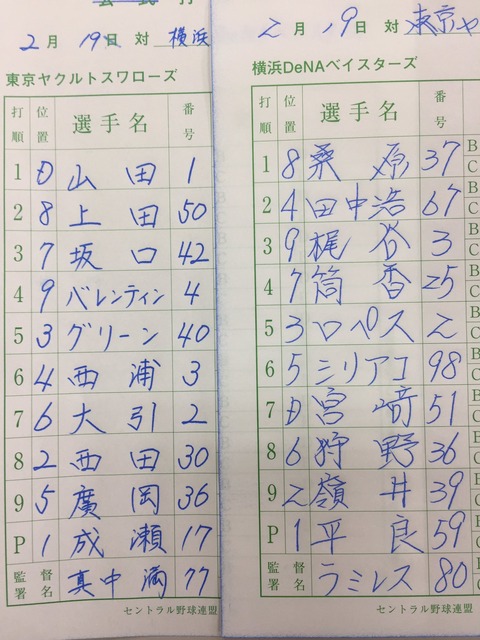 2月19日 対 横浜
東京ヤクルトスワローズ
打順 位置 選手名 番号
1 D 山田 1
2 8 上田 50
3 7 坂口 42
4 9 バレンティン 4
5 3 グリーン 40
6 4 西浦 3
7 6 大引 2
8 2 西田 30
9 5 廣岡 36
P 1 成瀬 17
監督署名 真中満 77
セントラル野球連盟
2月19日 対 東京ヤ
横浜DeNAベイスターズ
打順 位置 選手名 番号
1 8 桑原 37 B C
2 4 田中浩 67 B C
3 9 梶谷 3 B C
4 7 筒香 25 B C
5 3 ロペス 2 B C
6 5 シリアコ 98 B C
7 D 宮﨑 51 B C
8 6 狩野 36 B C
9 2 嶺井 39 B C
P 1 平良 59 B C
監督署名 ラミレス 80
セントラル野球連盟